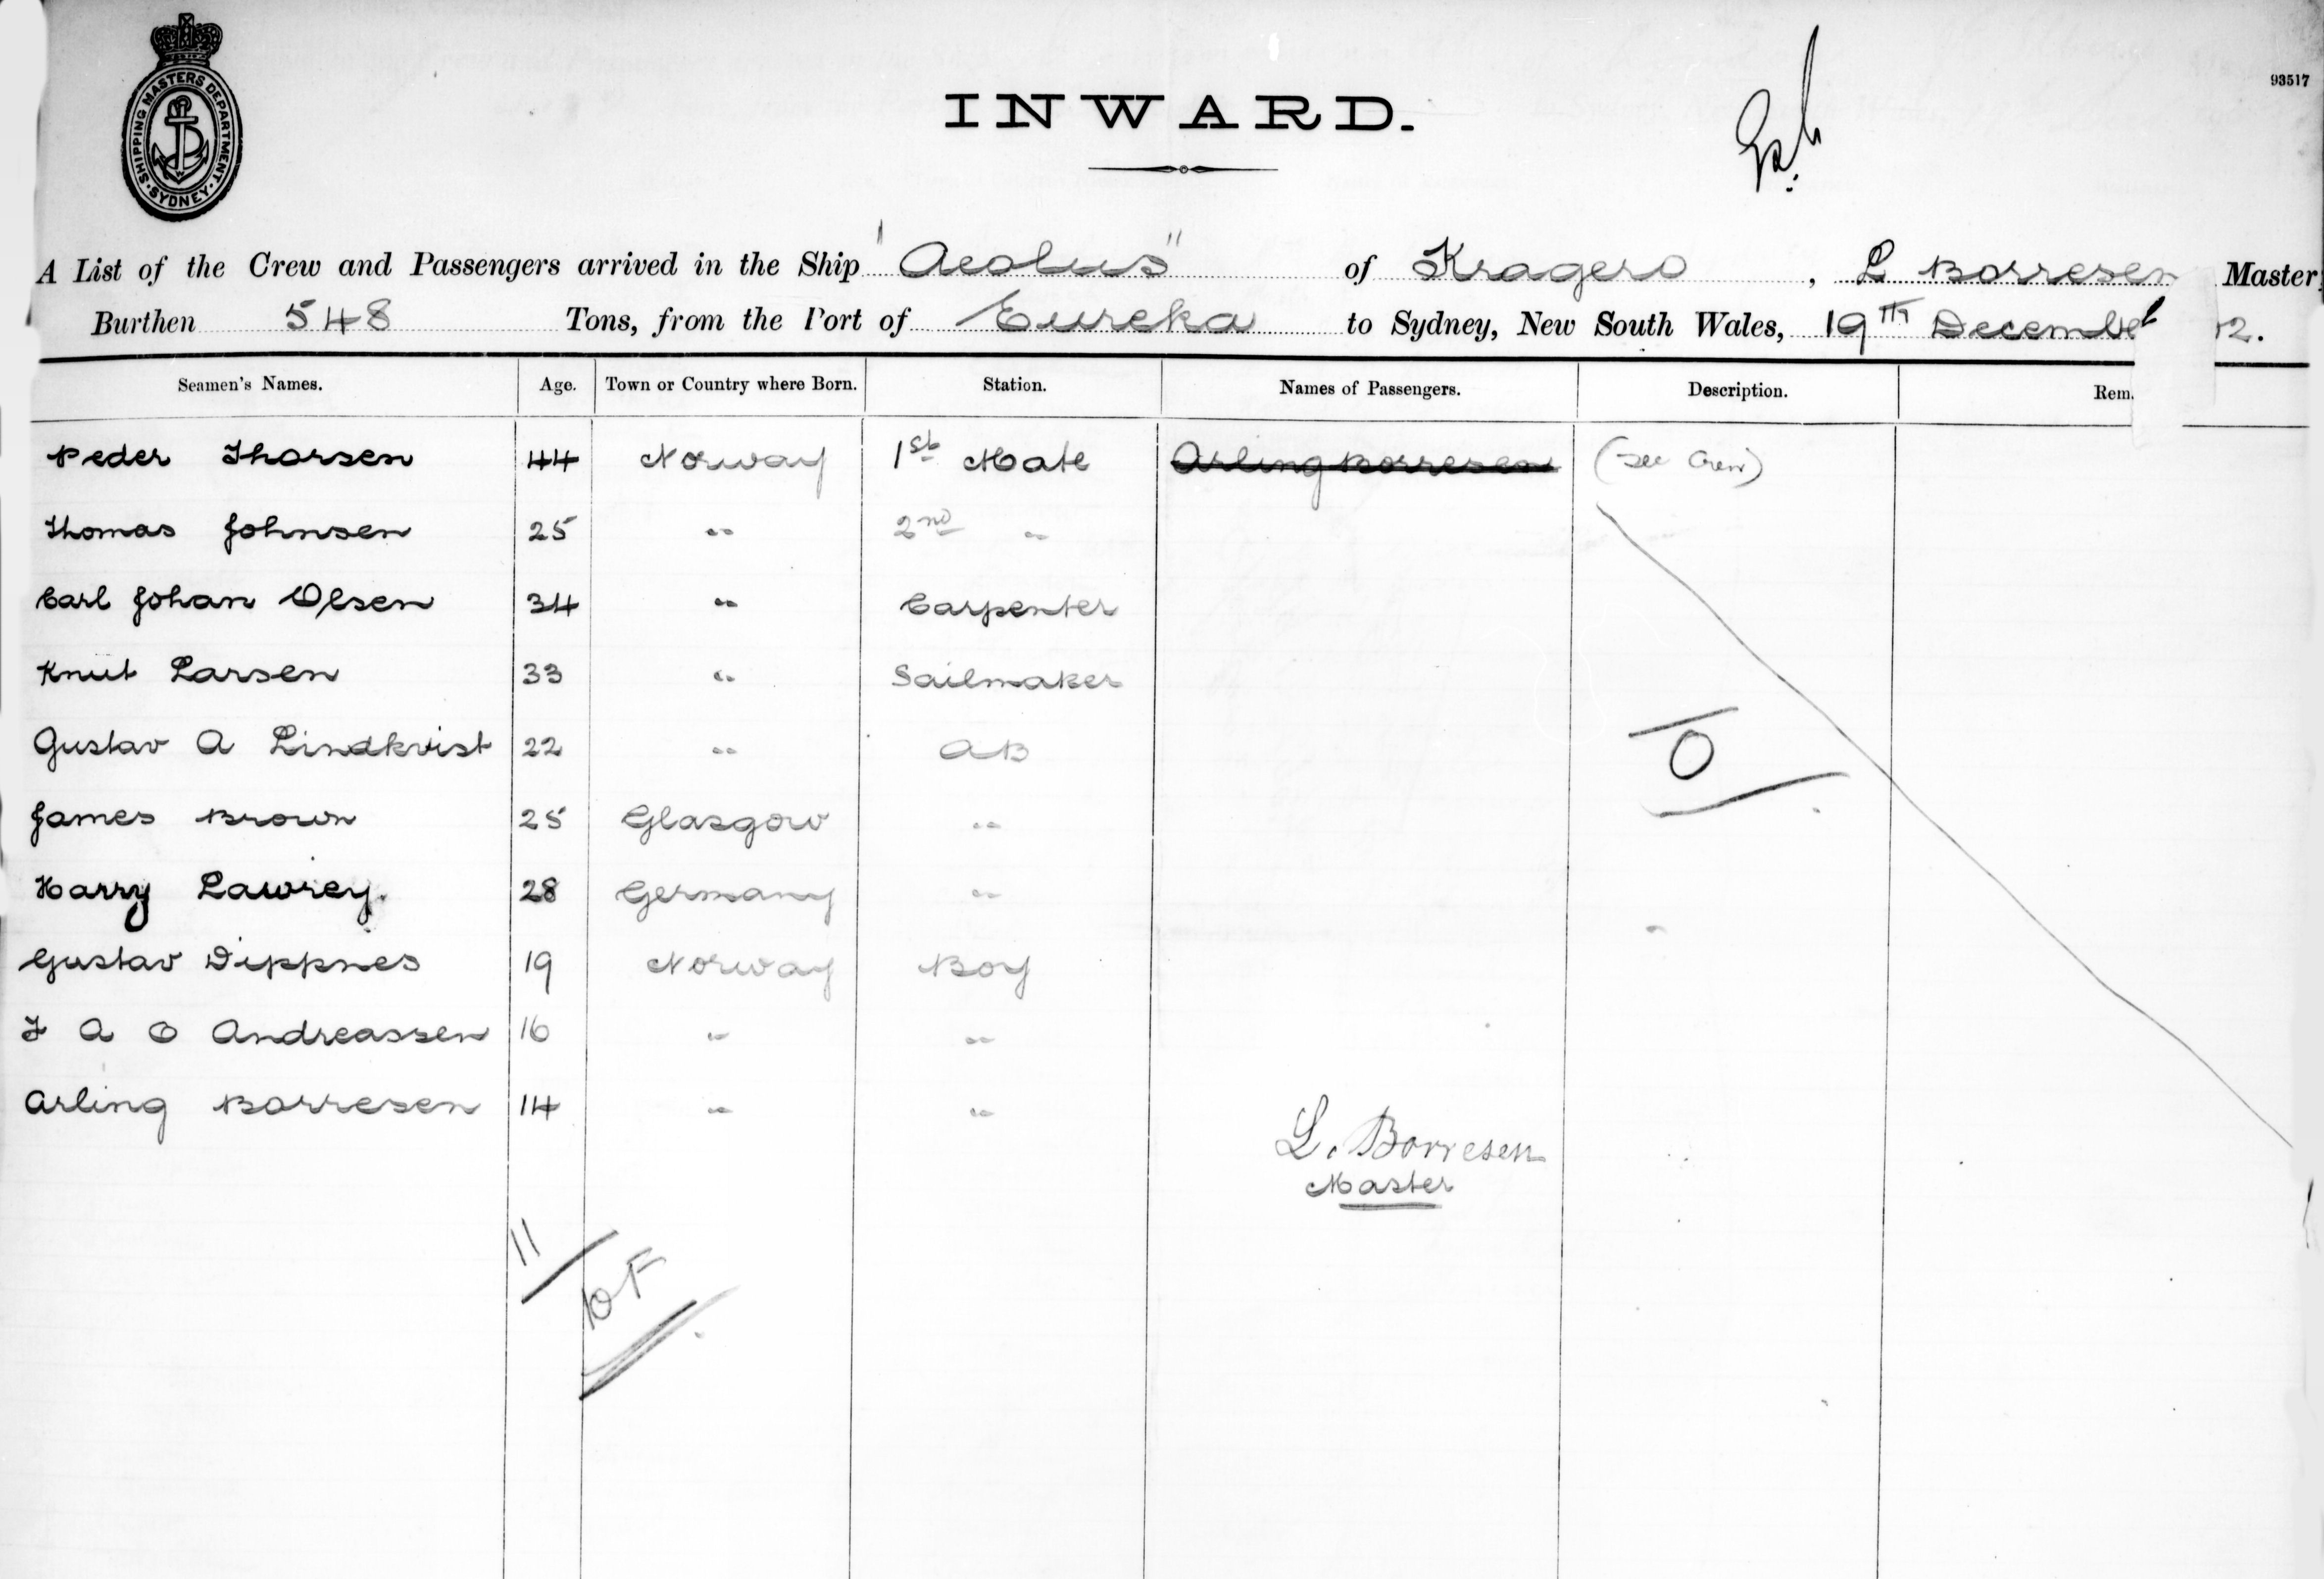 SHIPPING MASTERS DEPARTMENT. SYDNEY
93517
INWARD.
A List of the Crew and Passengers arrived in the Ship "Aeolus" of Kragero, L Borresen Master
Burthen 548 Tons, from the Port of Eureka to Sydney, New South Wales, 19TH December 2.
Seamen's Names. Age. Town or Country where Born. Station. Names of Passengers. Description. Rem.
Peder Thorsen 44 Norway 1st Mate Arling Borresen (See Crew)
Thomas Johnsen 25 " 2nd "
Carl Johan Olsen 34 " Carpenter
Knut Larsen 33 " Sailmaker
Gustav A Lindkvist 22 " AB
James Brown 25 Glasgow "
Harry Lawrey. 28 Germany "
Gustav Dippnes 19 Norway Boy
A O Andreassen 16 " "
Arling Borresen 14 " "
O
L. Borresen
Master
11
10F